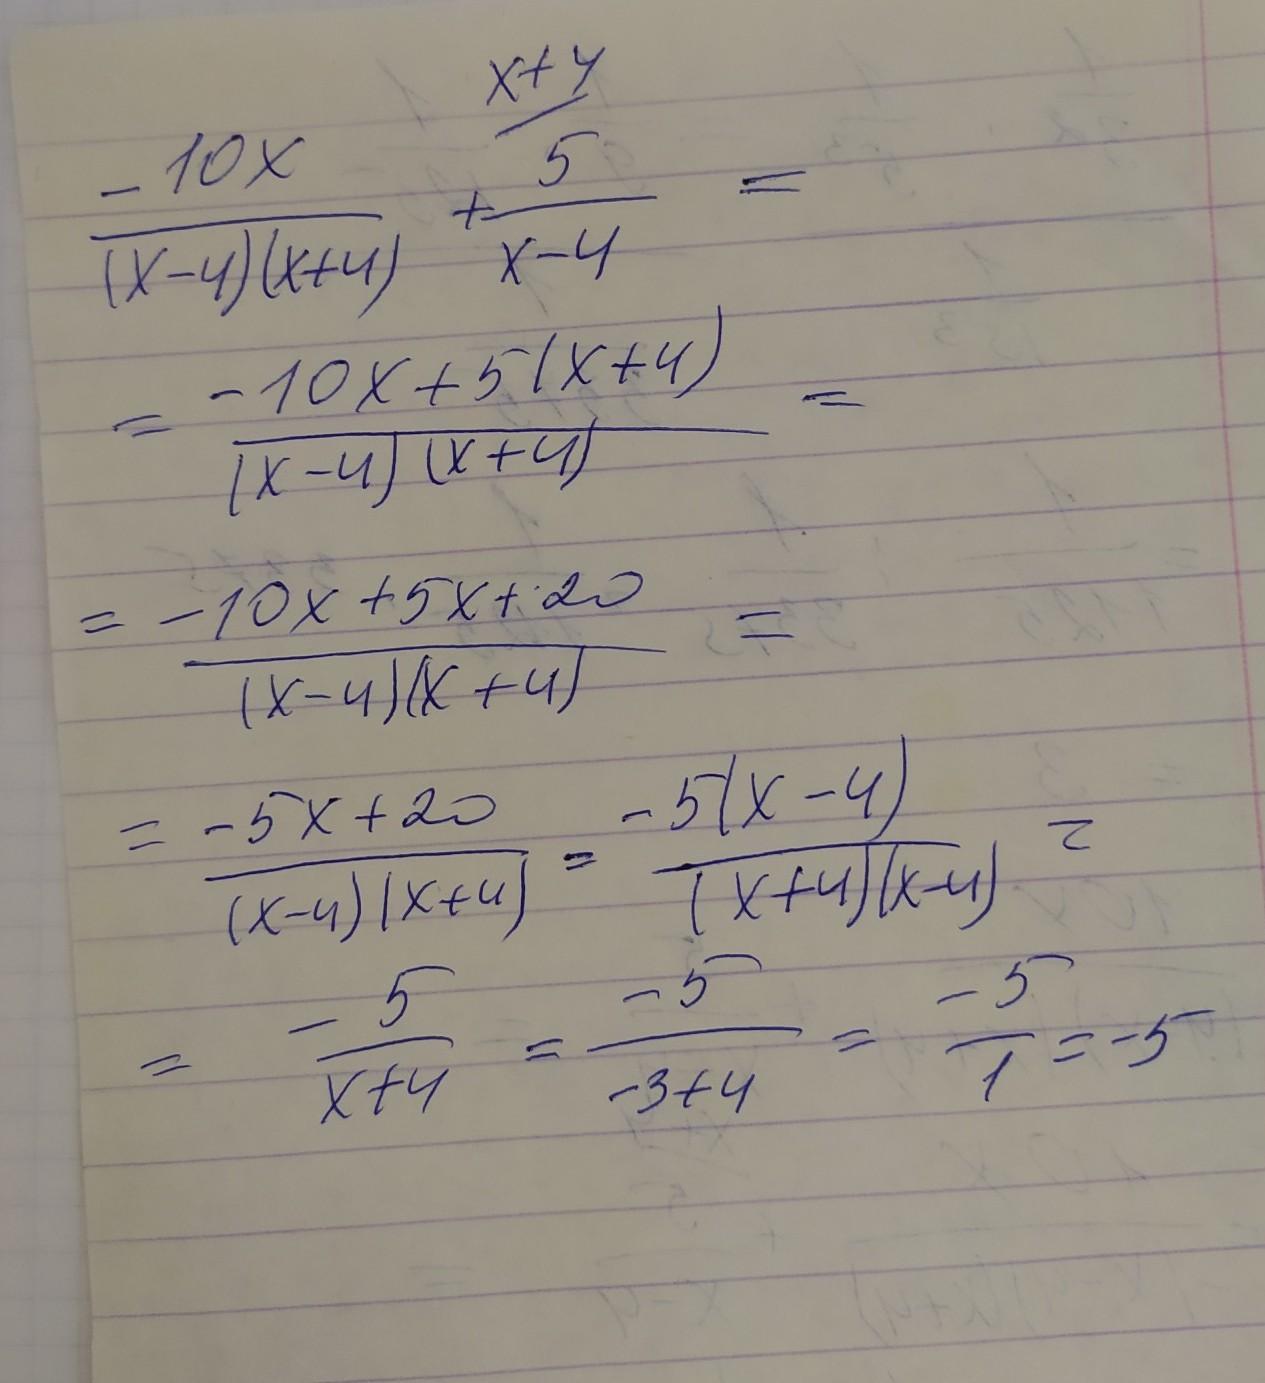 x+4
-10x/((x-4)(x+4)) + 5/(x-4) =
= (-10x+5(x+4))/((x-4)(x+4)) =
= (-10x+5x+20)/((x-4)(x+4)) =
= (-5x+20)/((x-4)(x+4)) = -5(x-4)/((x+4)(x-4)) =
= -5/(x+4) = -5/(-3+4) = -5/1 = -5